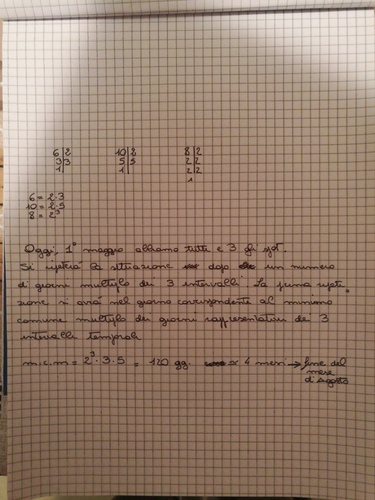 6|2 10|2 8|2
3|3 5|5 2|2
1| 1| 2|2
1
6 = 2·3
10 = 2·5
8 = 2³
Oggi, 1° maggio abbiamo tutti e 3 gli
Si ripeterà la situazione dopo un numero
di giorni multiplo dei 3 intervalli. La prima ripeti_
zione si avrà nel giorno corrispondente al minimo
comune multiplo dei giorni rappresentativi dei 3
intervalli temporali
m.c.m = 2³·3·5 = 120 gg. × 4 mesi → fine del
mese
d'agosto